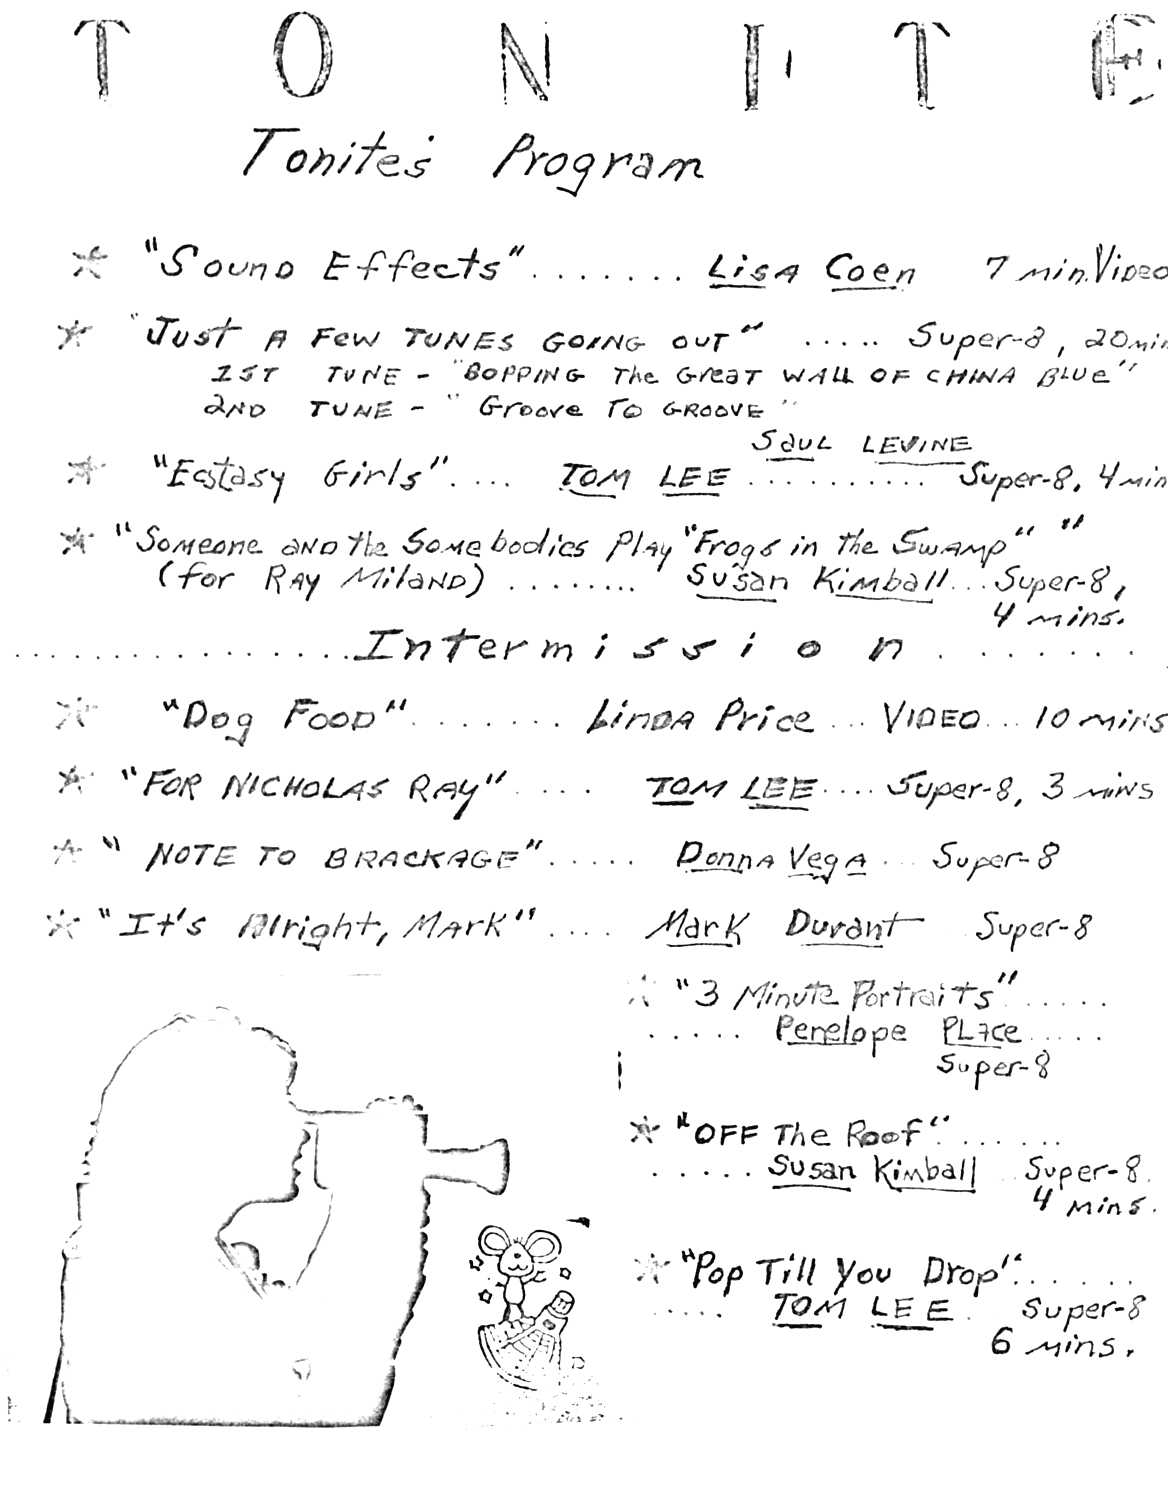 TONITE
Tonite's Program
* "Sound Effects"....... Lisa Coen 7 min. Video
* "Just A Few TUNES GOING OUT" ..... Super-8, 20 min
1ST TUNE - "BOPPING The Great WALL OF CHINA BLUe"
2ND TUNE - "Groove To GROOVE"
Saul LEVINE
* "Ecstasy Girls".... TOM LEE .......... Super-8, 4 min
* "Someone and the Somebodies Play "Frogs in the Swamp" "
(for Ray Miland) ........ Susan Kimball... Super-8,
4 mins.
................Intermission.......
* "Dog Food"........ Linda Price ... VIDEO... 10 mins
* "FOR NICHOLAS RAY".... TOM LEE.... Super-8, 3 mins
* "NOTE TO BRACKAGE"..... Donna Vega ... Super-8
* "It's Alright, Mark".... Mark Durant Super-8
* "3 Minute Portraits".....
..... Penelope PLace.....
Super-8
* "OFF The Roof".......
..... Susan Kimball Super-8.
4 mins.
* "Pop Till You Drop".......
..... TOM LEE. Super-8
6 mins.